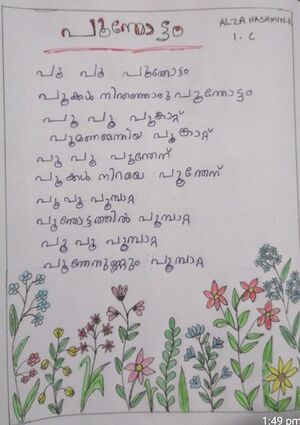 പൂന്തോട്ടം
ALZA HASHMIN.K
1. C
പൂ പൂ പൂന്തോട്ടം
പൂക്കൾ നിറഞ്ഞൊരു പൂന്തോട്ടം
പൂ പൂ പൂങ്കാറ്റ്
പൂമണമേന്തിയ പൂങ്കാറ്റ്
പൂ പൂ പൂന്തേന്
പൂക്കൾ നിറയെ പൂന്തേന്
പൂ പൂ പൂമ്പാറ്റ
പൂന്തോട്ടത്തിൽ പൂമ്പാറ്റ
പൂ പൂ പൂമ്പാറ്റ
പൂന്തേനുണ്ണും പൂമ്പാറ്റ
1:49 pm